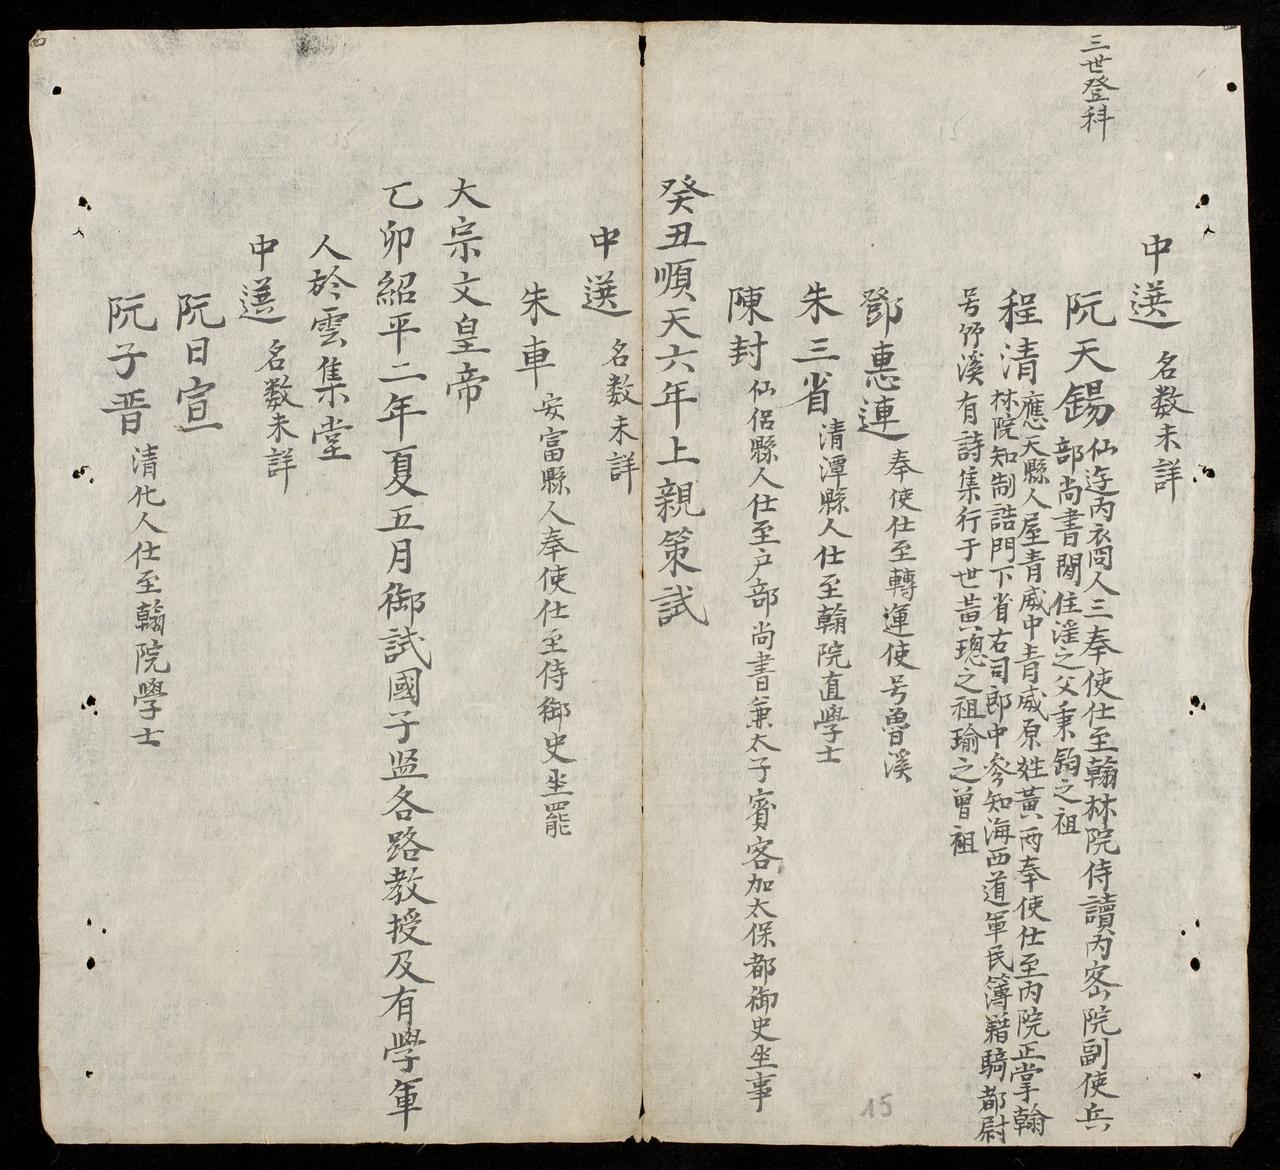 三世登科
中選 名数未詳
阮天錫 仙遊內裔人三奉使仕至翰林院侍讀內密院副使兵
部尚書閒住滛之父秉鈞之祖
程清 應天縣人屋青威中青威原姓黃両奉使仕至內院正掌翰
林院知制誥門下省右司郎中參知海西道軍民簿籍騎都尉
号竹溪有詩集行于世黃璁之祖瑜之曾祖
鄧惠連 奉使仕至轉運使号魯溪
朱三省 清潭縣人仕至翰院直學士
陳封 仙侶縣人仕至户部尚書兼太子賓客加太保都御史坐事
癸丑順天六年上親策試
中選 名数未詳
朱車 安富縣人奉使仕至侍御史坐罷
大宗文皇帝
乙卯紹平二年夏五月御試國子监各路教授及有學軍
人於雲集堂
中選 名数未詳
阮日宣
阮子晋 清化人仕至翰院學士
15